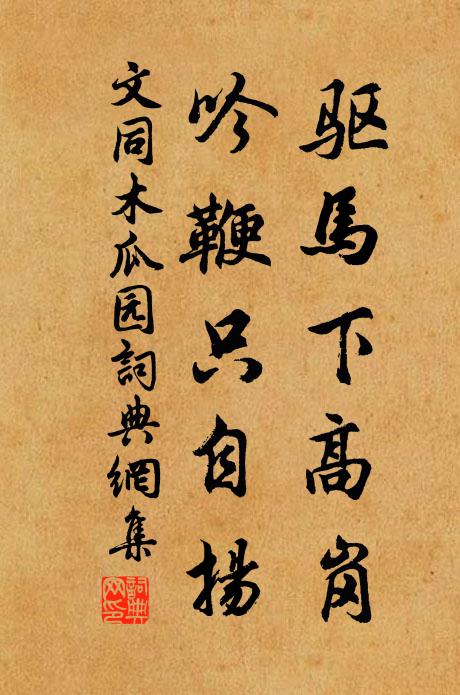 驱馬下高岗
吟鞭只自揚
文同木瓜园詞典網集
詞典网印